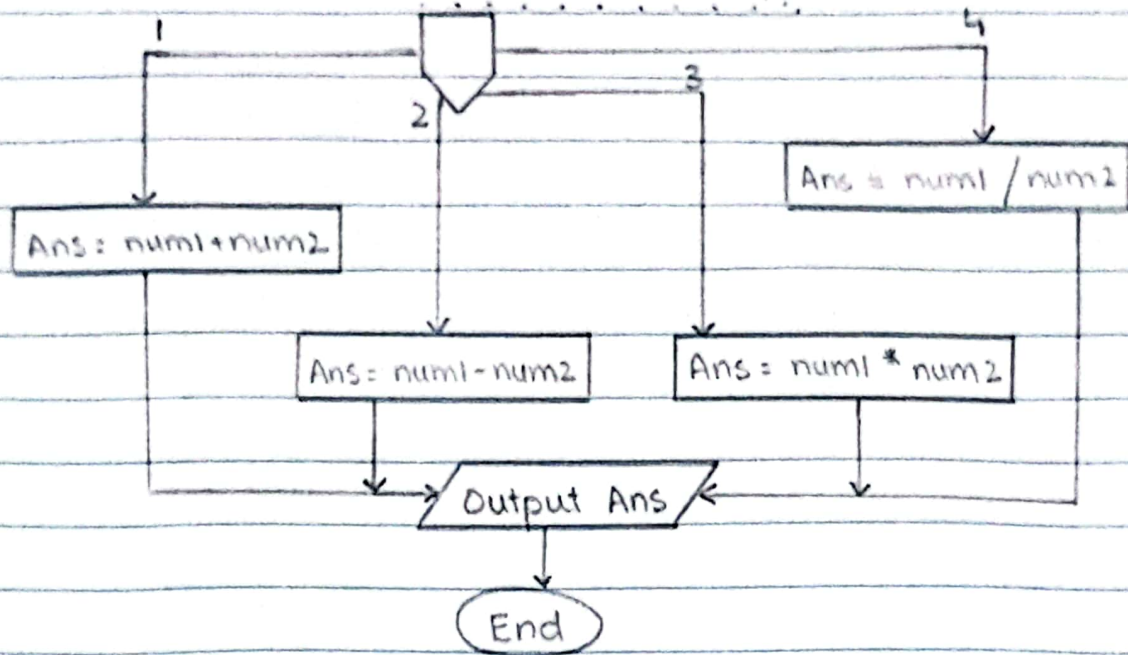 1
4
3
2
Ans = num1 / num2
Ans = num1+num2
Ans = num1-num2
Ans = num1 * num2
Output Ans
End